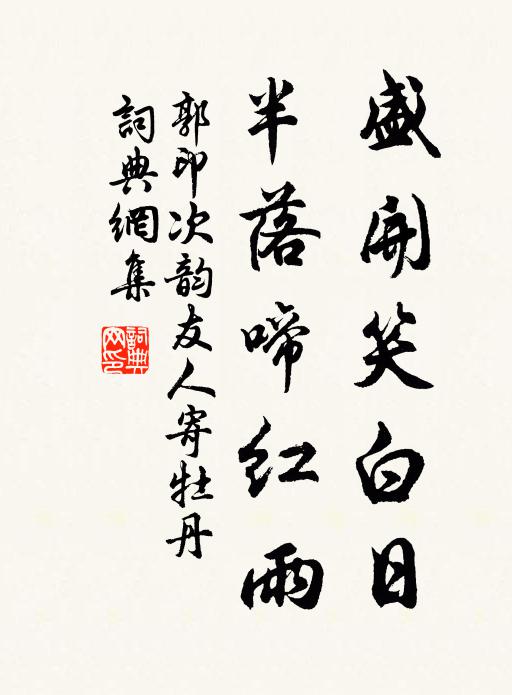 盛開笑白日
半落啼紅雨
郭印次韵友人寄牡丹
詞典網集
詞典网印